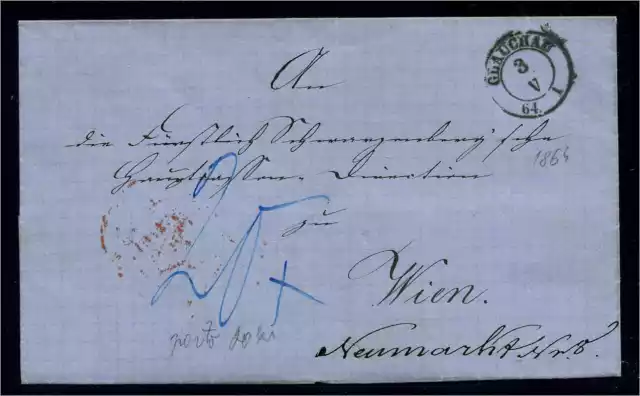 GLAUCHAU
3
V
64. I
An
die Fürstlich Schwarzenberg'sche
Hauptkassen-Direction
1864
zu
20 x
Wien.
porto
Neumarkt Nr 8.